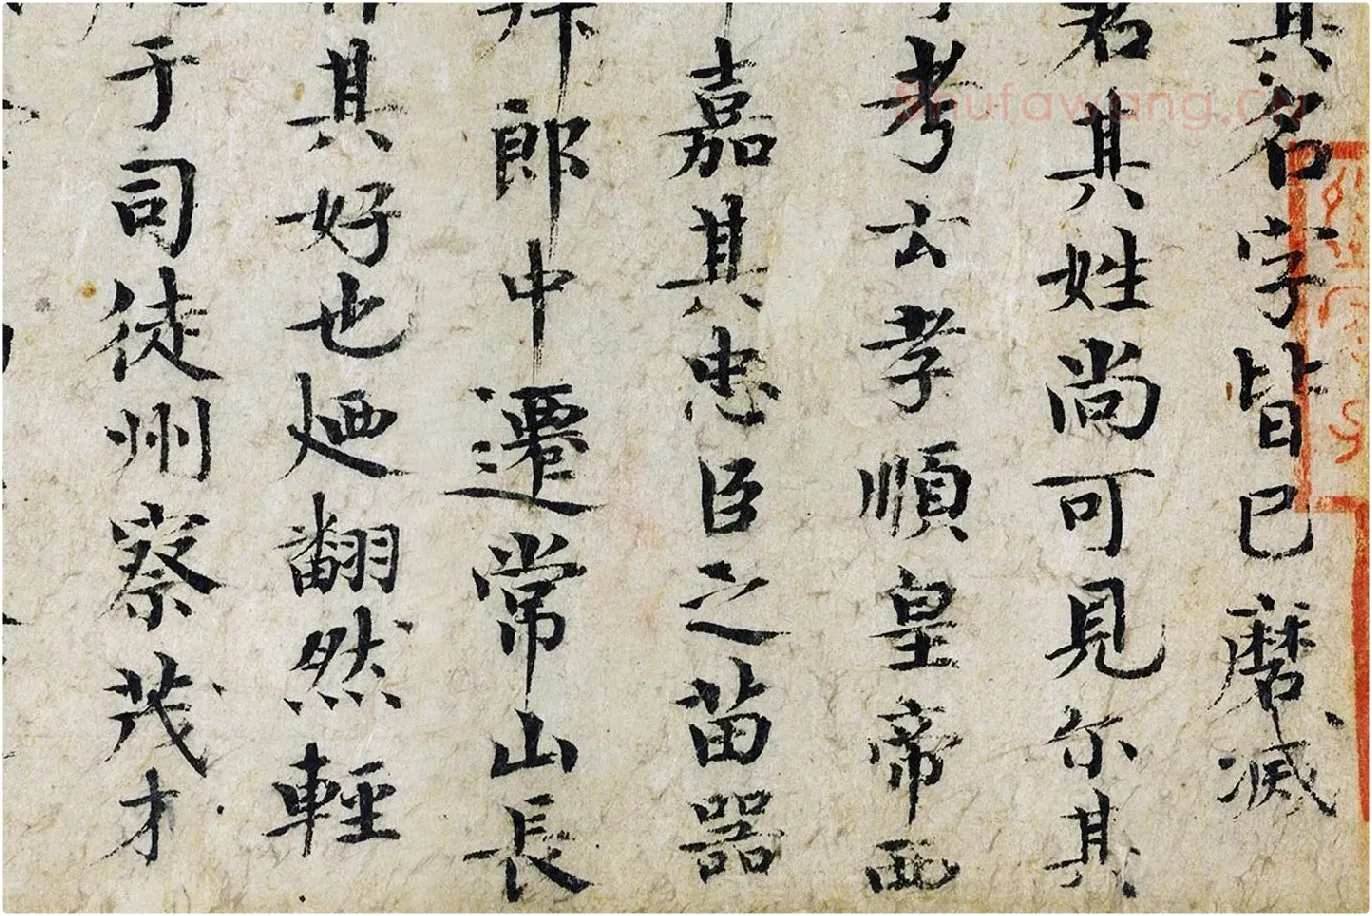 其名字皆已磨滅
君其姓尚可見尔其
考玄孝順皇帝西
嘉其忠臣之苗器
拜郎中遷常山長
其好也迺翻然輕
于司徒州察茂才
shufawang.cn